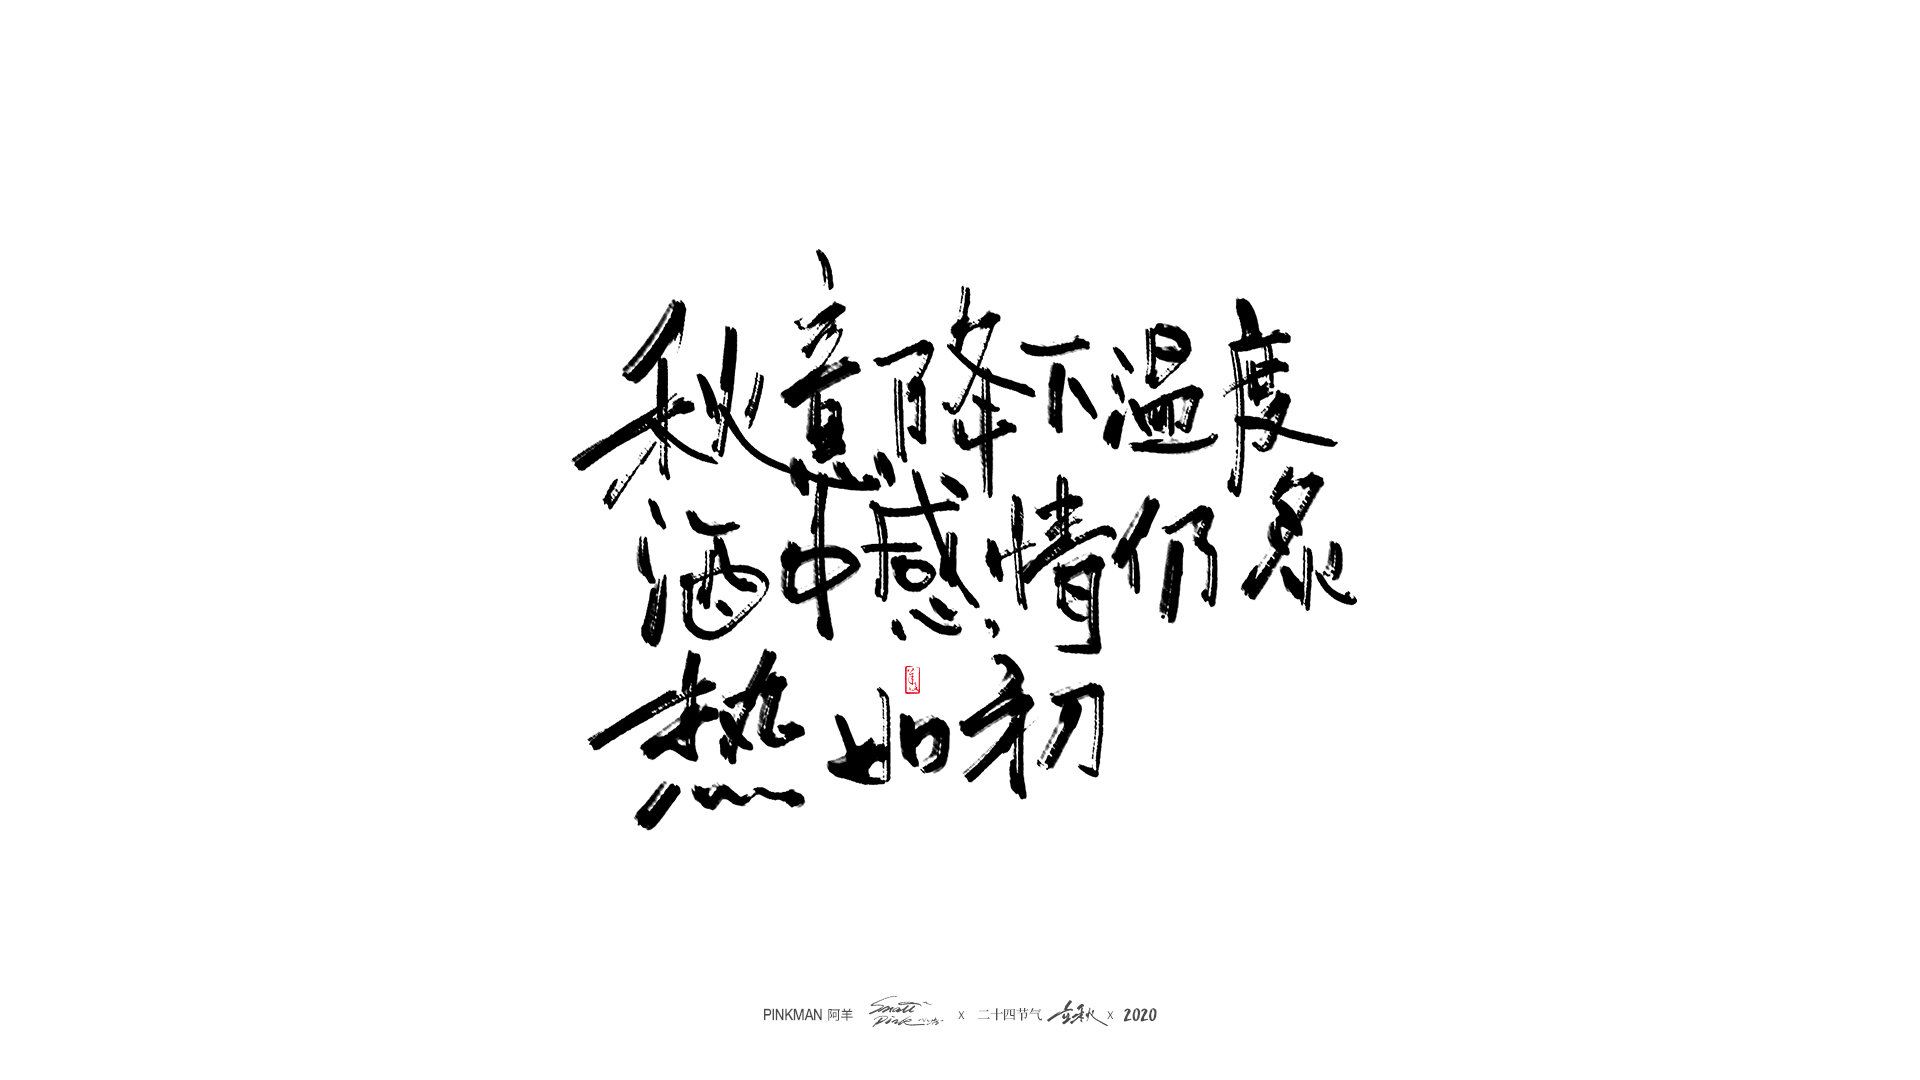 秋意降下温度
酒中感情仍炙
热如初
PINKMAN 阿羊 Small Pink x 二十四节气 立秋 x 2020